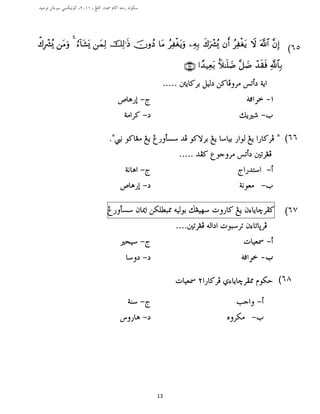 سكوله رنده اݢام ﷴ، كدح ، ٢٠١١، كوليكسي سوءالن توحيد
٦٥) إِنَّ ٱللَّهَ لَا يَغْفِرُ أَن يُشْرَكَ بِهِۦ وَيَغْفِرُ مَا دُونَ ذَٰلِكَ لِمَن يَشَآءُ ۚ وَمَن يُشْرِكْ
بِٱللَّهِ فَقَدْ ضَلَّ ضَلَٰلًۢا بَعِيدًا ۝١١٦
اية دأتس مروڤاكن دليل بركايتن .....
أ- خرافة ج- إرهاص
ب- شيريك د- كرامة
٦٦) " ڤركارا يڠ لوار بياسا يڠ بركلاكو ڤد سسأورڠ يڠ مڠاكو نبي".
ڤرڽتين دأتس مروجوع كڤد .....
أ- استدراج ج- اهانة
ب- معونة د- إرهاص
٦٧) ڤركچاياءن يڠ كاروت سهيڠݢ بوليه ممبطلكن ايمان سسأورڠ
ڤرڽاتاءن ترسبوت اداله ڤرڽتين....
أ- سمعيات ج- سيحير
ب- خرافة د- دوسا
٦٨) حكوم ممڤرچاياءي ڤركارا٢ سمعيات
أ- واجب ج- سنة
ب- مكروه د- هاروس
13